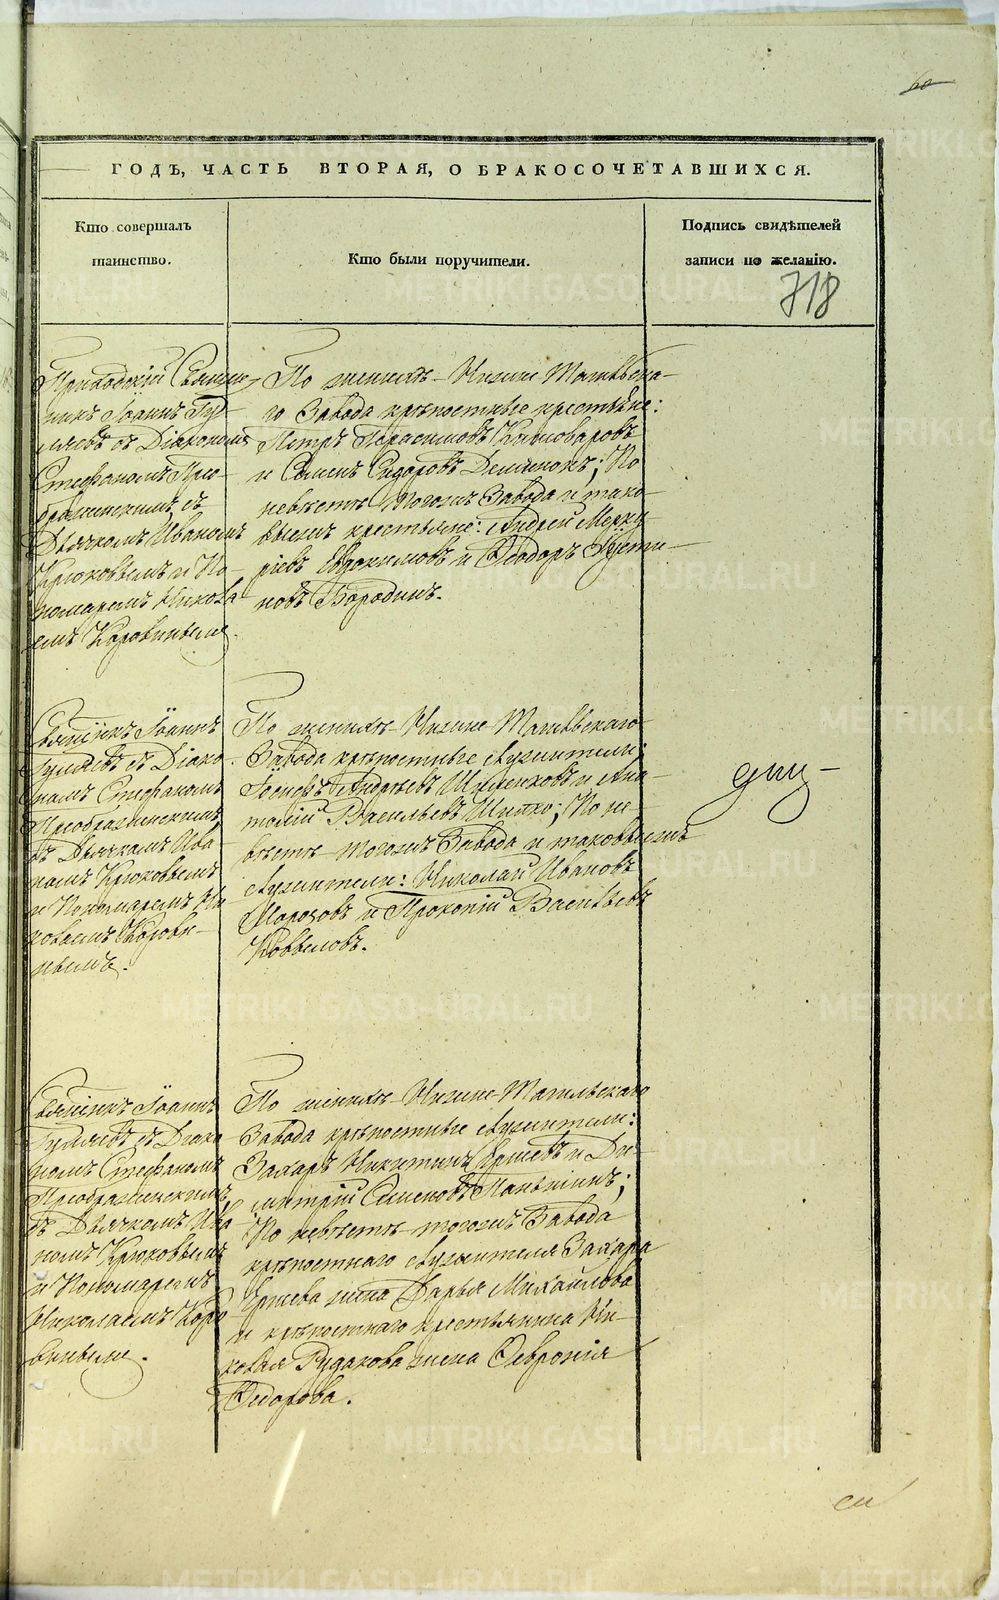 60
ГОДЪ, ЧАСТЬ ВТОРАЯ, О БРАКОСОЧЕТАВШИХСЯ.
Кто совершалъ
таинство.
Кто были поручители.
Подпись свидѣтелей
записи по желанію.
718
Приходскій Священ
никъ Іоаннъ Гу
ляевъ съ Діакономъ
Стефаномъ Прео-
браженскимъ, съ
Дьячкомъ Иваномъ
Крюковымъ и По-
номаремъ Никола
емъ Коровинымъ.
По женихѣ - Нижне Тагильска-
го Завода крѣпостные крестьяне:
Петръ Герасимовъ Киноваровъ
и Семенъ Сидоровъ Деменокъ; По
невѣстѣ тогожъ Завода и тако-
выежъ крестьяне: Андрей Мерку
ріевъ Евдокимовъ и Ѳеодоръ Усти-
новъ Бородинъ.
Свящ҃нкъ Іоаннъ
Гуляевъ съ Діако
номъ Стефаномъ
Преображенскимъ,
съ Дьячкомъ Ива
номъ Крюковымъ
и Пономаремъ Ни
колаемъ Корови-
нымъ.
По женихѣ - Нижне-Тагильскаго
Завода крѣпостные служители:
Іосифъ Андреевъ Шиленковъ и Ана-
толій Васильевъ Шипко; По не-
вѣстѣ - тогожъ Завода и таковыежъ
служители: Николай Ивановъ
Морозовъ и Прокопій Васильевъ
Ковеловъ.
Свящ҃нкъ Іоаннъ
Гуляевъ съ Діако
номъ Стефаномъ
Преображенскимъ,
съ Дьячкомъ Ива
номъ Крюковымъ
и Пономаремъ
Николаемъ Коро
винымъ.
По женихѣ - Нижне-Тагильскаго
Завода крѣпостные служители:
Захаръ Никитинъ Ершевъ и Ди-
митрій Семеновъ Панышинъ;
По невѣстѣ - тогожъ Завода
крѣпостнаго служителя Захара
Ершева жена Дарья Михайлова
и крѣпостнаго крестьянина Ни-
колая Рудакова жена Ѳевронія
Ѳедорова.
METRIKI.GASO-URAL.RU